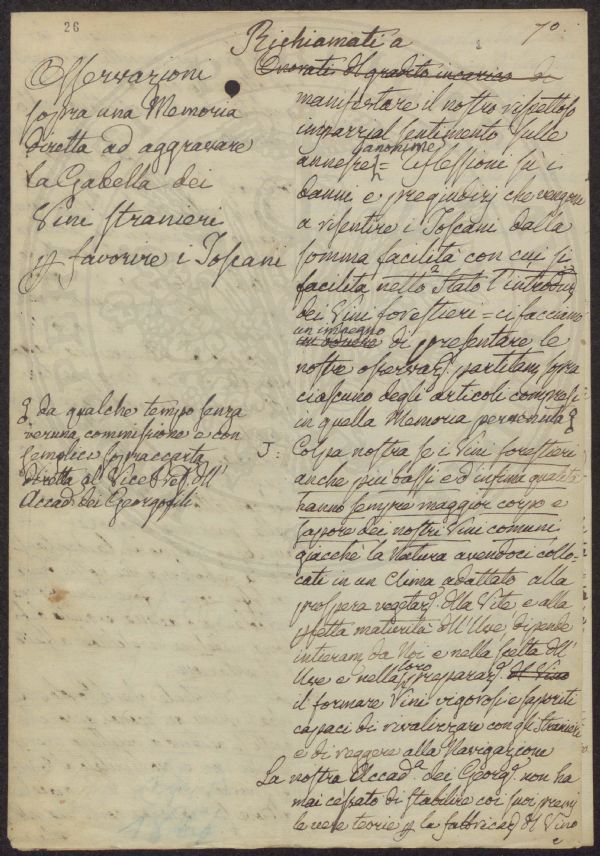 26
70.
Osservazioni
sopra una Memoria
diretta ad aggravare
la Gabella dei
Vini stranieri
p favorire i Toscani
Richiamati a
Onorati del gradito incarico di
manifestare il nostro rispettoso
imparzial sentimento sulle
anonime
annesse = Riflessioni su i
danni e pregiudizj che vengono
a risentire i Toscani dalla
somma facilità con cui si
facilita nello Stato l'introduz
dei Vini forestieri = ci facciamo
un impegno
di presentare le
nostre osservaz partitam sopra
ciascuno degli articoli compresi
in quella Memoria pervenuta
da qualche tempo senza
veruna commissione e con
semplice sopraccarta
diretta al Vice Pres. dell'
Accad. dei Georgofili.
Colpa nostra se i Vini forestieri
anche più bassi e d'infima qualità
hanno sempre maggior corpo e
sapore dei nostri Vini comuni
giacchè la Natura avendoci collo-
cati in un clima adattato alla
prospera vegetaz. della Vite e alla
pfetta maturità dell'Uve dipende
interam da Noi e nella scelta dell'
Uve e nella loro preparaz. del Vino
il formare Vini vigorosi e saporiti
capaci di rivalizzare con gli stranieri
e di reggere alla Navigazione
La nostra Accad. dei Georg. non ha
mai cessato di stabilire coi suoi premj
le vere teorie p la fabbricaz del Vino
e